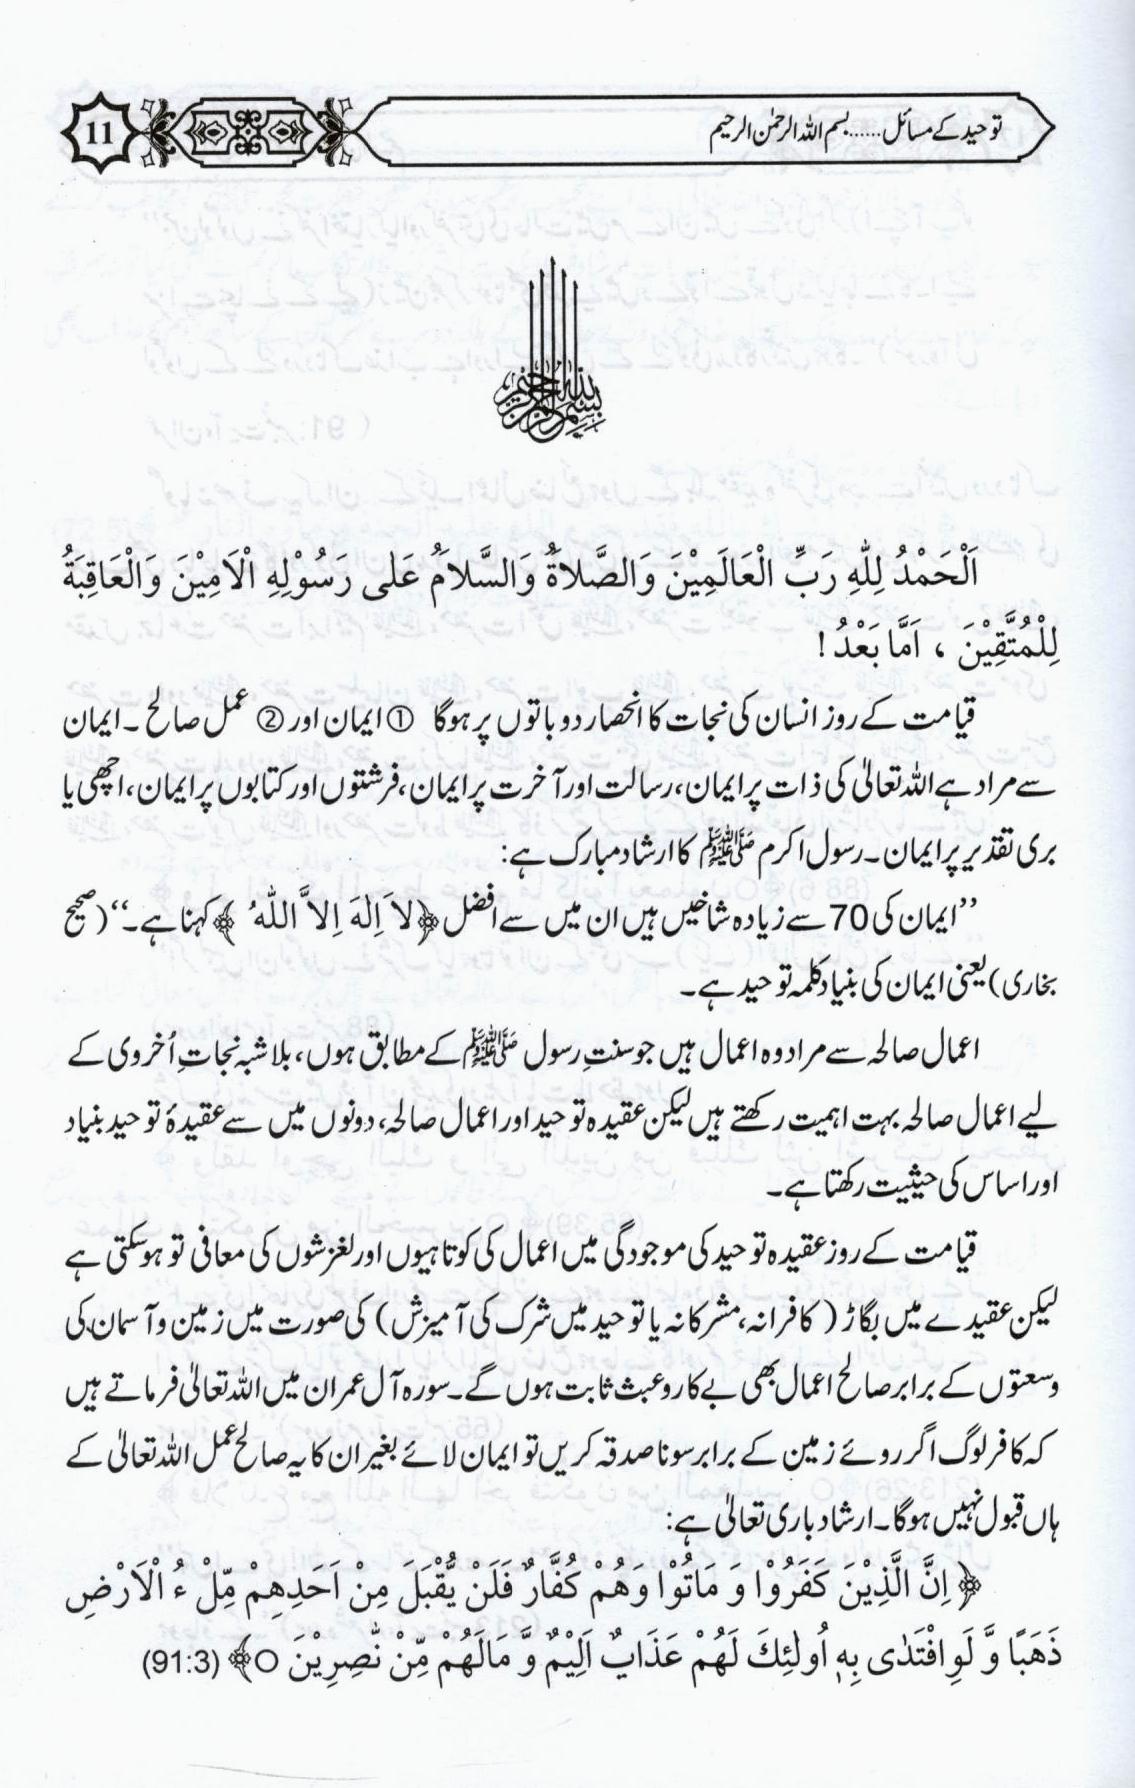 توحید کے مسائل......بسم اللہ الرحمٰن الرحیم
11
بسم اللہ الرحمن الرحیم
اَلْحَمْدُ لِلّٰهِ رَبِّ الْعَالَمِيْنَ وَالصَّلاَةُ وَالسَّلاَمُ عَلٰى رَسُوْلِهِ الْاَمِيْنَ وَالْعَاقِبَةُ
لِلْمُتَّقِيْنَ ، اَمَّا بَعْدُ !
قیامت کے روز انسان کی نجات کا انحصار دو باتوں پر ہوگا ① ایمان اور ② عمل صالح ۔ ایمان
سے مراد ہے اللہ تعالیٰ کی ذات پر ایمان، رسالت اور آخرت پر ایمان، فرشتوں اور کتابوں پر ایمان، اچھی یا
بری تقدیر پر ایمان۔ رسول اکرم ﷺ کا ارشاد مبارک ہے:
’’ایمان کی 70 سے زیادہ شاخیں ہیں ان میں سے افضل ﴿لاَ اِلٰهَ اِلاَّ اللّٰهُ ﴾ کہنا ہے۔‘‘ (صحیح
بخاری) یعنی ایمان کی بنیاد کلمہ توحید ہے۔
اعمال صالحہ سے مراد وہ اعمال ہیں جو سنتِ رسول ﷺ کے مطابق ہوں، بلاشبہ نجاتِ اُخروی کے
لیے اعمال صالحہ بہت اہمیت رکھتے ہیں لیکن عقیدہ توحید اور اعمال صالحہ، دونوں میں سے عقیدۂ توحید بنیاد
اور اساس کی حیثیت رکھتا ہے۔
قیامت کے روز عقیدہ توحید کی موجودگی میں اعمال کی کوتاہیوں اور لغزشوں کی معافی تو ہوسکتی ہے
لیکن عقیدے میں بگاڑ ( کافرانہ، مشرکانہ یا توحید میں شرک کی آمیزش) کی صورت میں زمین و آسمان کی
وسعتوں کے برابر صالح اعمال بھی بے کار و عبث ثابت ہوں گے۔ سورہ آل عمران میں اللہ تعالیٰ فرماتے ہیں
کہ کافر لوگ اگر روئے زمین کے برابر سونا صدقہ کریں تو ایمان لائے بغیر ان کا یہ صالح عمل اللہ تعالیٰ کے
ہاں قبول نہیں ہوگا۔ ارشاد باری تعالیٰ ہے:
﴿ اِنَّ الَّذِيْنَ كَفَرُوْا وَ مَاتُوْا وَهُمْ كُفَّارٌ فَلَنْ يُّقْبَلَ مِنْ اَحَدِهِمْ مِّلْ ءُ الْاَرْضِ
ذَهَبًا وَّ لَوِ افْتَدٰى بِهٖ اُولٰئِكَ لَهُمْ عَذَابٌ اَلِيْمٌ وَّ مَالَهُمْ مِّنْ نّٰصِرِيْنَ ○﴾ (91:3)